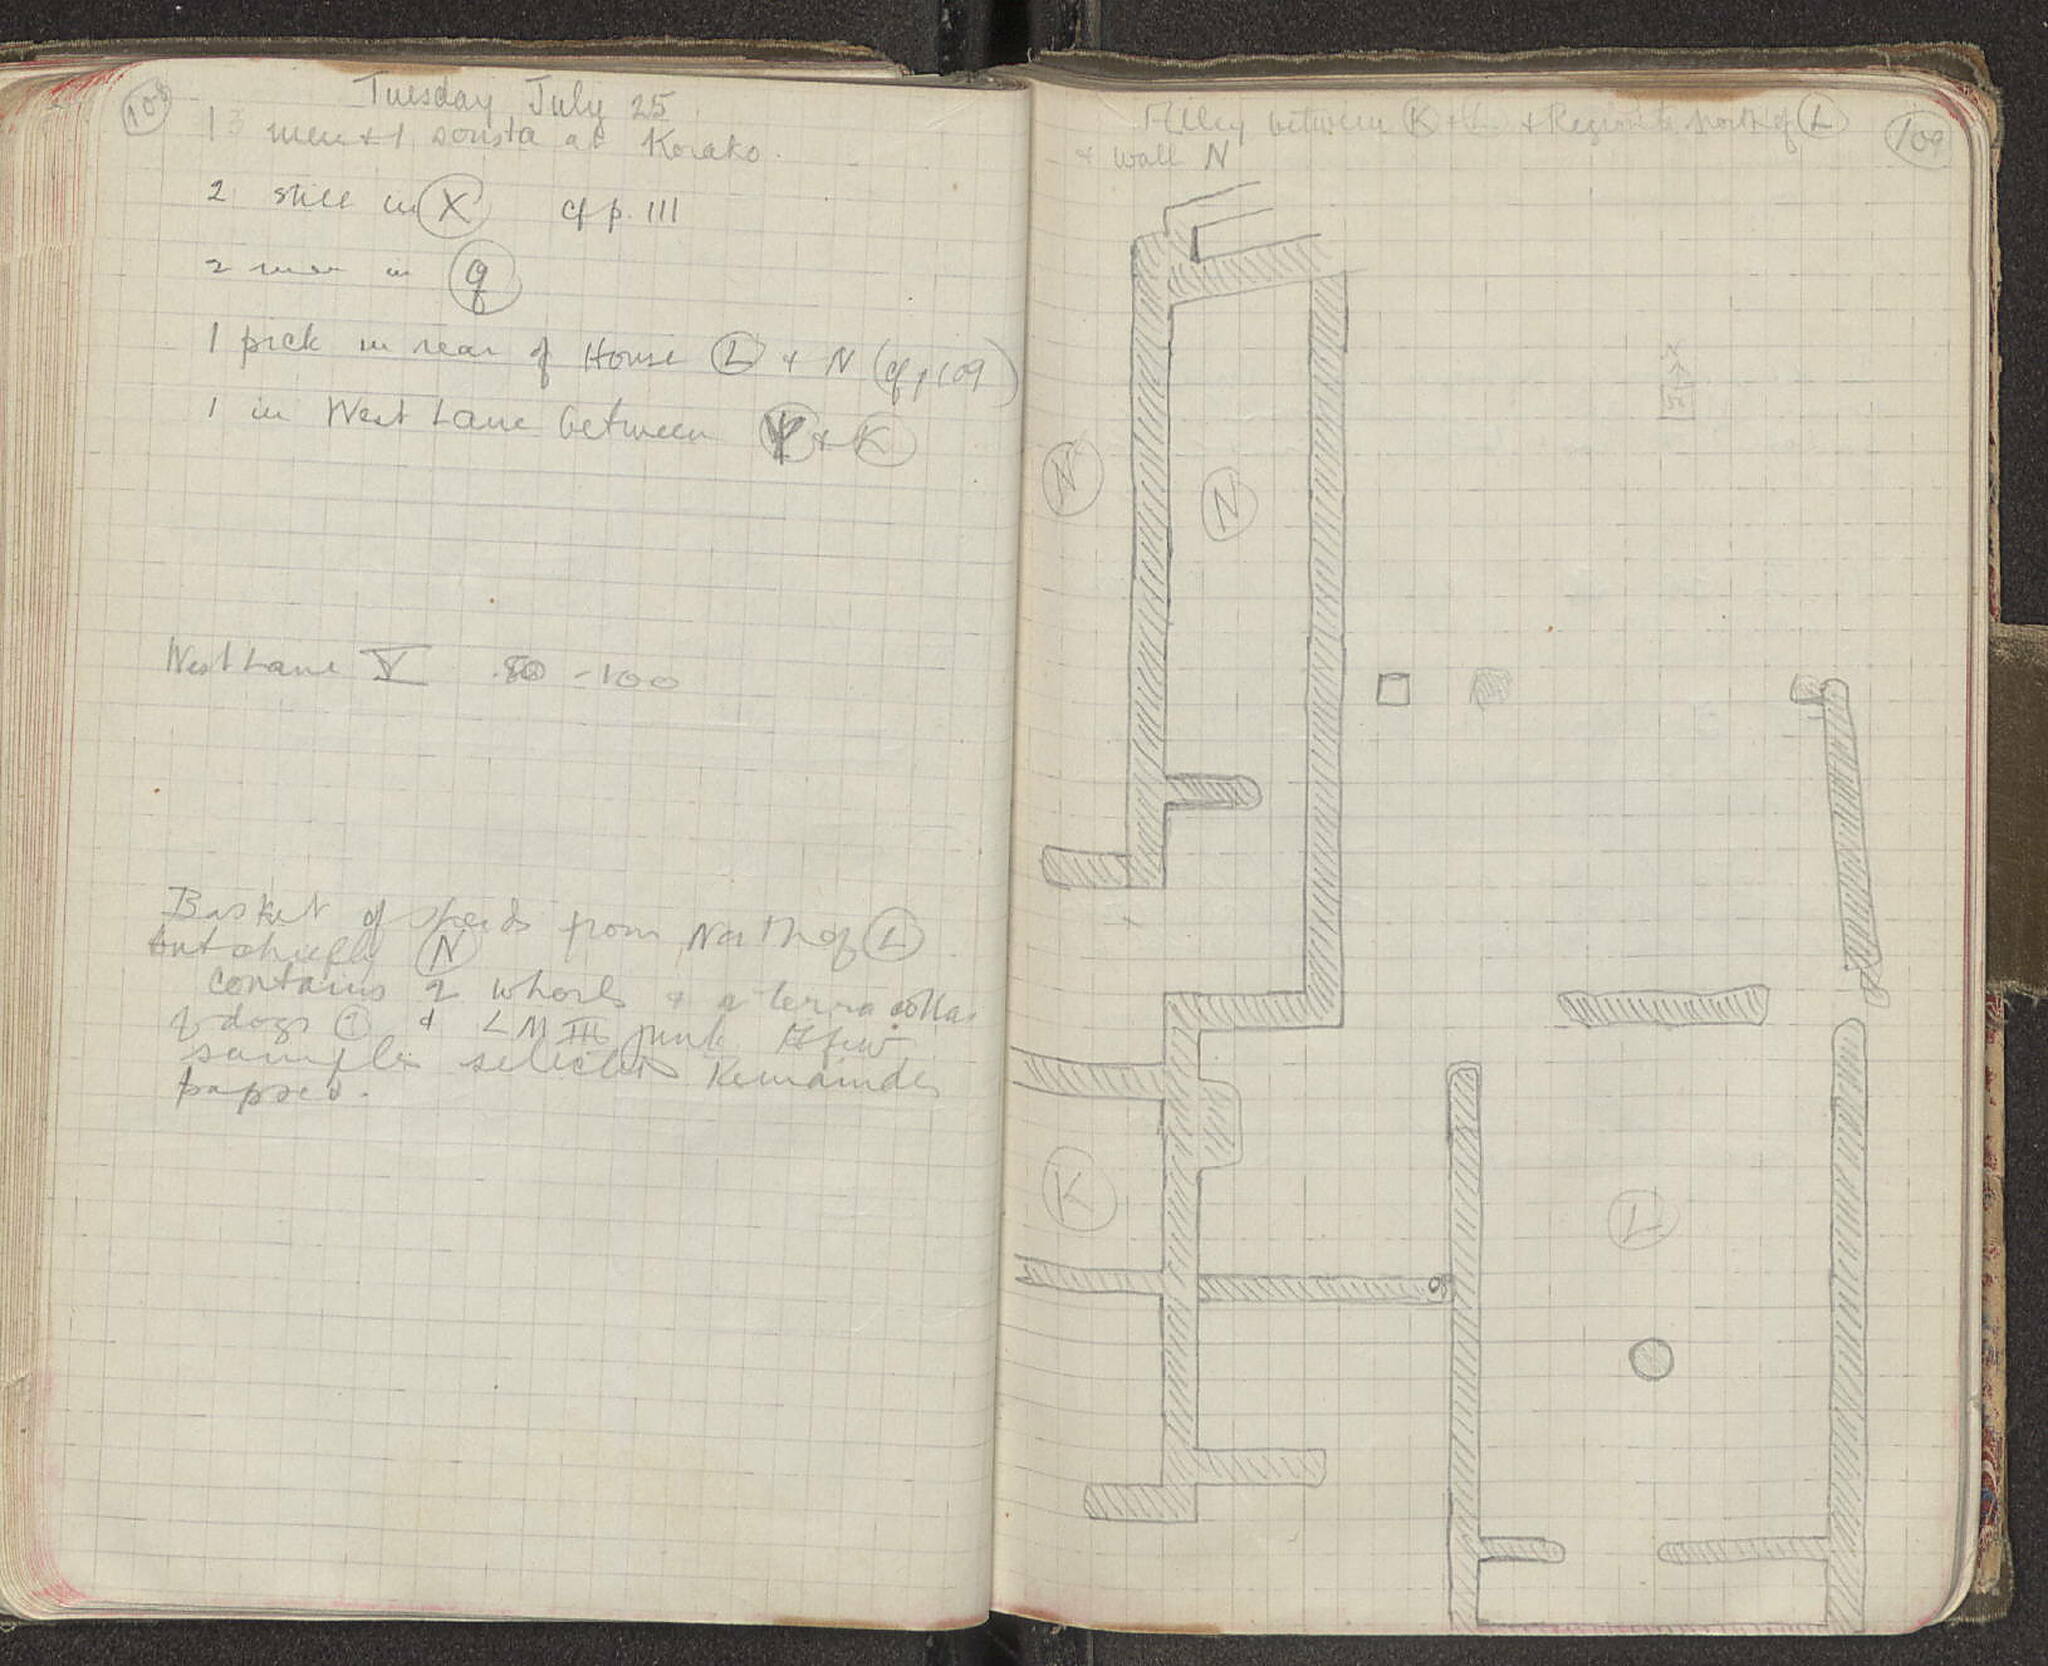 108
Tuesday July 25
13 men + 1 sousta at Korako.
2 still in X cf p. 111
2 men in q
1 pick in rear of House L + N (cf p 109)
1 in West Lane between Ψ + K
West Lane V .80 - 100
Basket of sherds from North of L
but chiefly N
contains 2 whorls + 2 terra cottas
2 dogs ? + LM III junk A few
samples selected Remainder
papsed.
Alley between K + L + Region to north of L
109
+ wall N
N
N
K
L